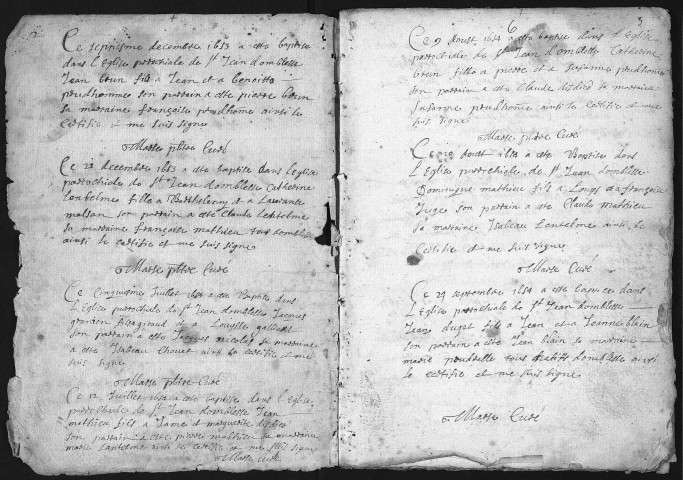 2
Ce septiesme decembre 1653 a este baptise
dans l'Eglise parrochiale de St Jean domblesse
Jean brun fils a Jean et a benoitte
prudhomme son parrain a este pierre brun
sa marraine françoise prudhome ainsi le
certifie et me suis signé
Marse ptbre Curé
Ce 22 decembre 1653 a este baptise dans l'Eglise
parrochialle de St Jean domblesse Catherine
lentelme fille a Barthelemy et a Laurance
son parrain a este Claude lentelme
sa marraine françoise mathieu tous domblesse
ainsi le certifie et me suis signe
Marse ptbre Curé
Ce Cinquiesme Juillet 1654 a este Baptise dans
l'Eglise parrochiale de St Jean domblesse Jacques
fils a giraud et a Louyse
son parrain a este Jacques nicolas sa marraine
a este Isabeau Chouet ainsi le certifie et me
suis signe
Marse ptbre Curé
Ce 12 Juillet 1654 a este baptise dans l'Eglise
parrochiale de St Jean domblesse Jean
mathieu fils a Jame et marguerite
son parrain a este pierre mathieu sa marraine
marie Lantelme ainsi le certifie et me suis signe
Marse Curé
6
3
Ce 9 Aoust 1654 a este baptise dans l'Eglise
parrochiale de St Jean domblesse Catherine
brun fille a pierre et a Suzanne prudhome
son parrain a este Claude sa marraine
Suzanne prudhome ainsi le certifie et me
suis signe
Marse ptbre Curé
Ce Aoust 1654 a este Baptise dans
l'Eglise parrochiale de St Jean domblesse
Dominique mathieu fils a Louys et a françoise
Juge son parrain a este Claude mathieu
sa marraine Isabeau Lantelme ainsi le
Certifie et me suis signe
Marse Curé
Ce 27 septembre 1654 a este baptise dans
l'Eglise parrochiale de St Jean domblesse
Jean duget fils a Jean et a Jeanne blain
son parrain a este Jean blain sa marraine
marie tous habitants domblesse ainsi
le certifie et me suis signe
Marse Curé